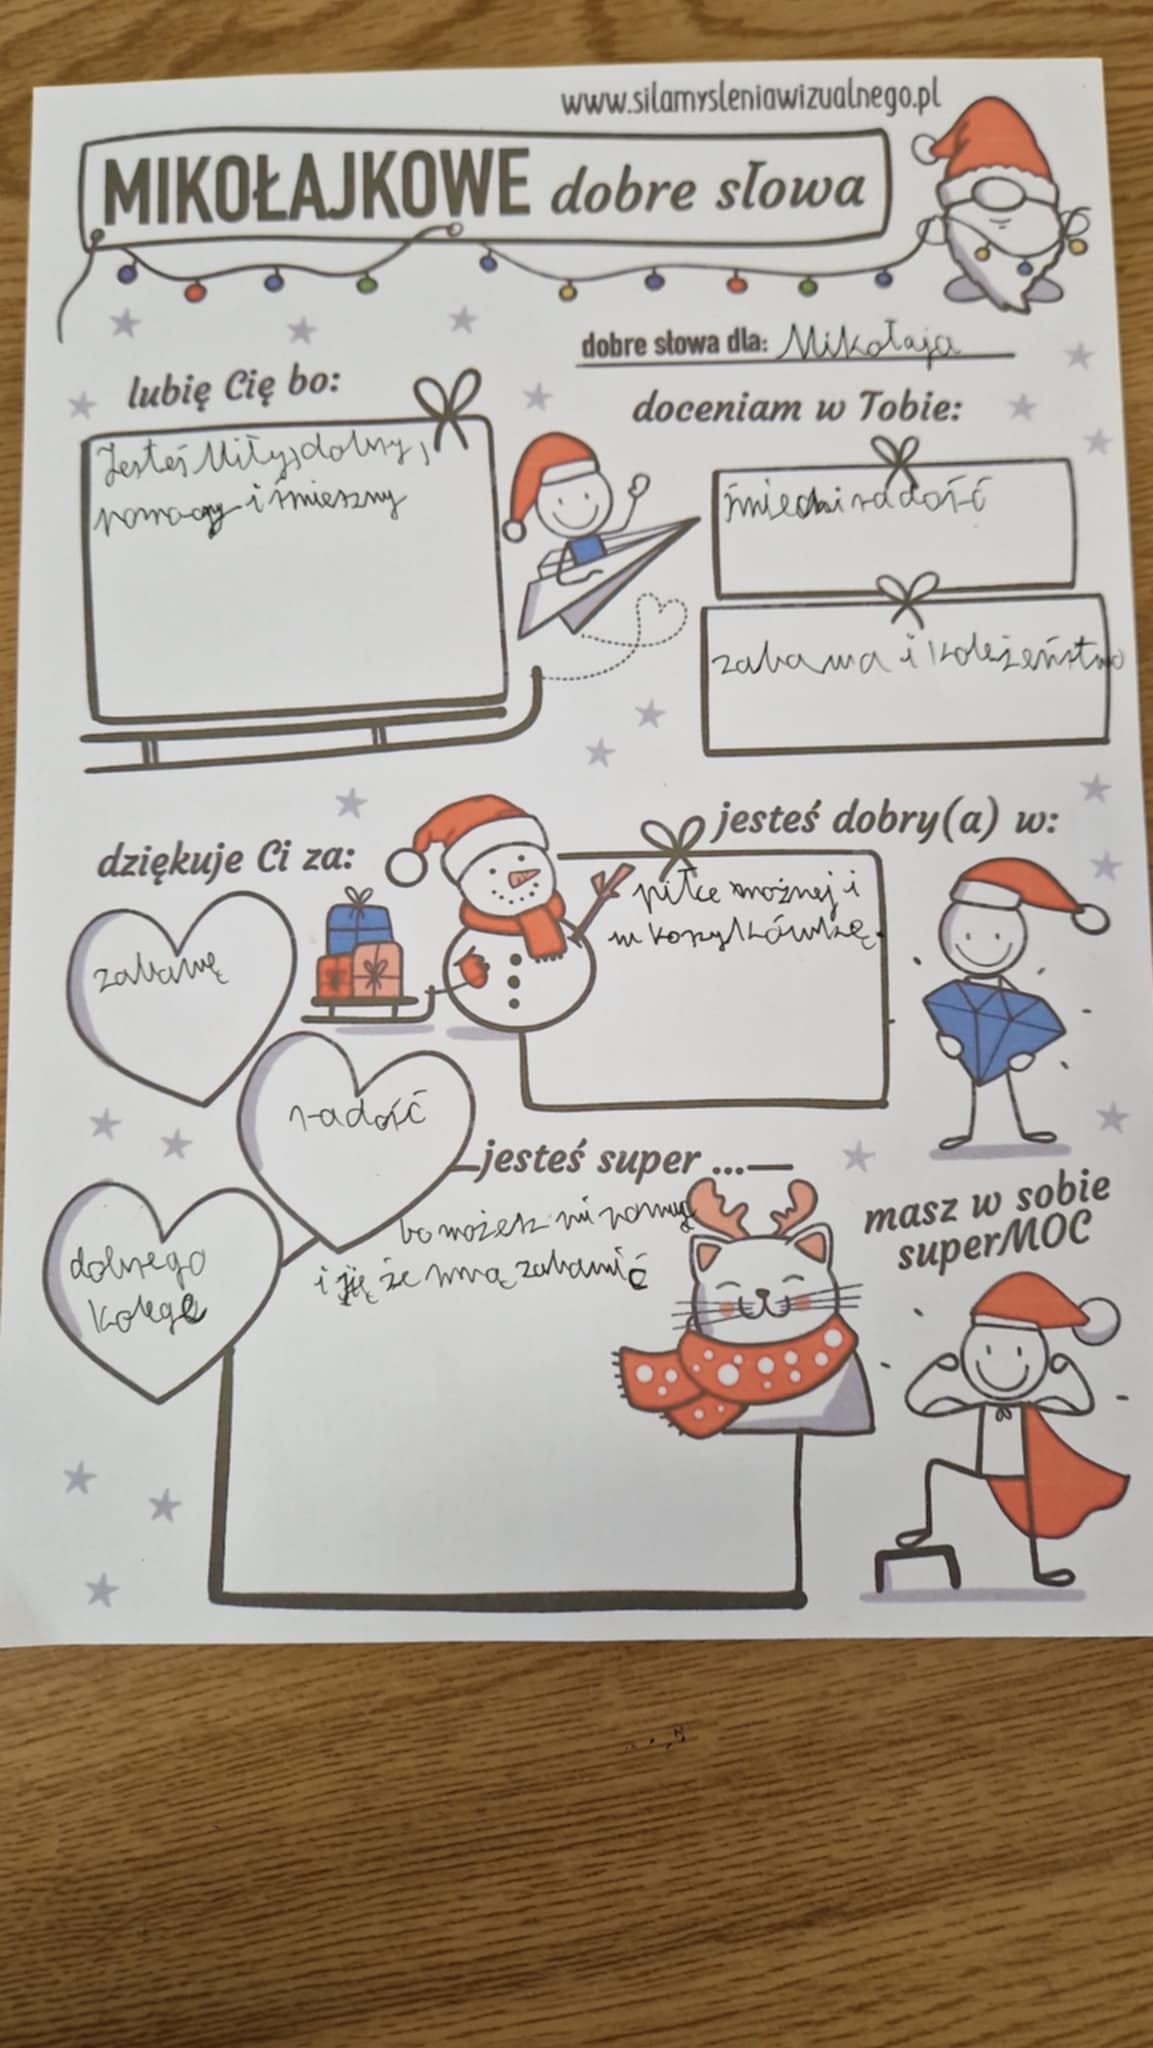 www.silamysleniawizualnego.pl
MIKOŁAJKOWE dobre słowa
dobre słowa dla: Mikołaja
lubię Cię bo:
Jesteś Miły, dobry,
pomocny i śmieszny
doceniam w Tobie:
śmiech i radość
zabawa i koleżeństwo
dziękuje Ci za:
zabawę
radość
dobrego
kolegę
jesteś dobry(a) w:
piłce nożnej i
w koszykówkę.
jesteś super ...
bo możesz mi pomuc
i się ze mną zabawić
masz w sobie
superMOC